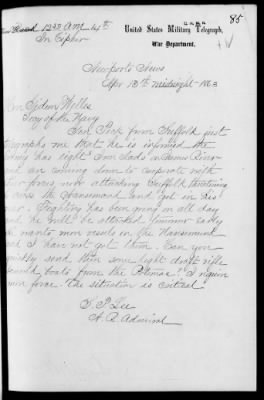 85
Recd 12 30 AM 14th
In Cipher
United States Military Telegraph,
War Department.
Newports News
Apr 13th midnight 1863
Hon Gideon Welles
Secy of the Navy
Gen Peck from Suffolk just
telegraphs me that he is informed the
enemy has eight Iron clads in James River
and are coming down to cooperate with
their forces now attacking Suffolk threatening
to cross the Nansemond and get in his
rear. Fighting has been going on all day
and he will be attacked tomorrow early
and wants more vessels in the Nansemond
and I have not got them. Can you
quickly send them some light draft rifle
gunned boats from the Potomac? I require
more force. The situation is critical
S. P. Lee
A R Admiral